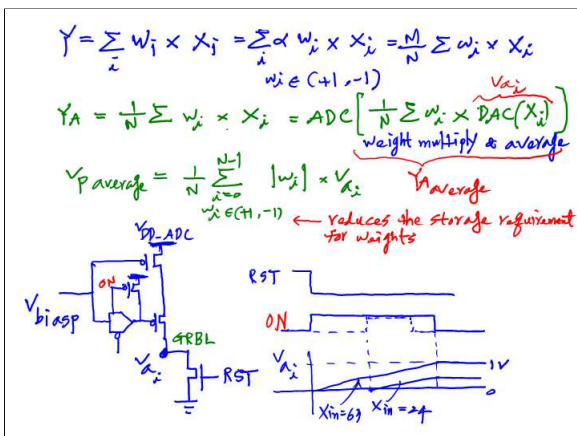 Y = ∑_i w_i × X_i = ∑_i α w_i × X_i = M/N ∑ w_i × X_i
w_i ∈ (+1, -1)
V_{a_i}
Y_A = 1/N ∑ w_i × X_i = ADC [ 1/N ∑ w_i × DAC(X_i) ]
weight multiply & average
Y_{A average}
V_{p average} = 1/N ∑_{i=0}^{N-1} |w_i| × V_{a_i}
w_i ∈ (+1, -1)
← reduces the storage requirement
for weights
V_{DD_ADC}
ON
V_{biasp}
GRBL
V_{a_i}
RST
RST
ON
V_{a_i}
1V
0
X_in=63
X_in=24